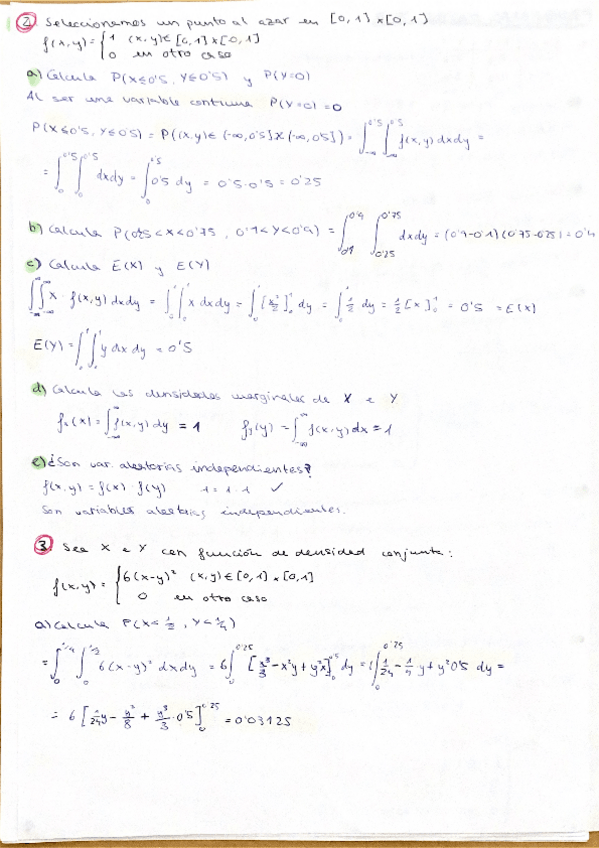 ② Seleccionamos un punto al azar en [0,1]×[0,1]
f(x,y) = { 1 (x,y)∈[0,1]×[0,1]
0 en otro caso
a) Calcula P(X≤0'5, Y≤0'5) y P(Y=0)
Al ser una variable continua P(Y=0)=0
P(X≤0'5, Y≤0'5) = P((x,y)∈(-∞,0'5]×(-∞,0'5]) = ∫_{-∞}^{0'5} ∫_{-∞}^{0'5} f(x,y) dxdy =
= ∫_0^{0'5} ∫_0^{0'5} dxdy = ∫_0^{0'5} 0'5 dy = 0'5·0'5 = 0'25
b) Calcula P(0'25<X<0'75, 0'1<Y<0'9) = ∫_{0'1}^{0'9} ∫_{0'25}^{0'75} dxdy = (0'9-0'1)(0'75-0'25) = 0'4
c) Calcula E(X) y E(Y)
∫_{-∞}^{∞} ∫_{-∞}^{∞} x·f(x,y) dxdy = ∫_0^1 ∫_0^1 x dxdy = ∫_0^1 [x²/2]_0^1 dy = ∫_0^1 1/2 dy = 1/2 [x]_0^1 = 0'5 = E(X)
E(Y) = ∫_0^1 ∫_0^1 y dx dy = 0'5
d) Calcula las densidades marginales de X e Y
fₓ(x) = ∫_{-∞}^{∞} f(x,y) dy = 1 f_y(y) = ∫_{-∞}^{∞} f(x,y) dx = 1
e) ¿Son var. aleatorias independientes?
f(x,y) = f(x)·f(y) 1=1·1 ✓
Son variables aleatorias independientes.
③ Sea X e Y con función de densidad conjunta:
f(x,y) = { 6(x-y)² (x,y)∈[0,1]×[0,1]
0 en otro caso
a) Calcula P(X<1/2, Y<1/4)
= ∫_0^{1/4} ∫_0^{1/2} 6(x-y)² dxdy = 6∫_0^{0'25} [x³/3 - x²y + y²x]_0^{0'5} dy = 6∫_0^{0'25} 1/24 - 1/4 y + y²0'5 dy =
= 6 [1/24 y - y²/8 + y³/3 · 0'5]_0^{0'25} = 0'03125